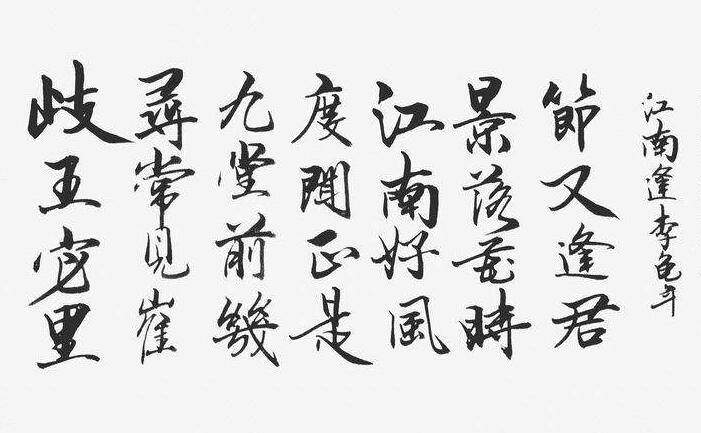 歧王宅里
尋常見崔
九堂前幾
度聞正是
江南好風
景落花時
節又逢君
江南逢李龜年